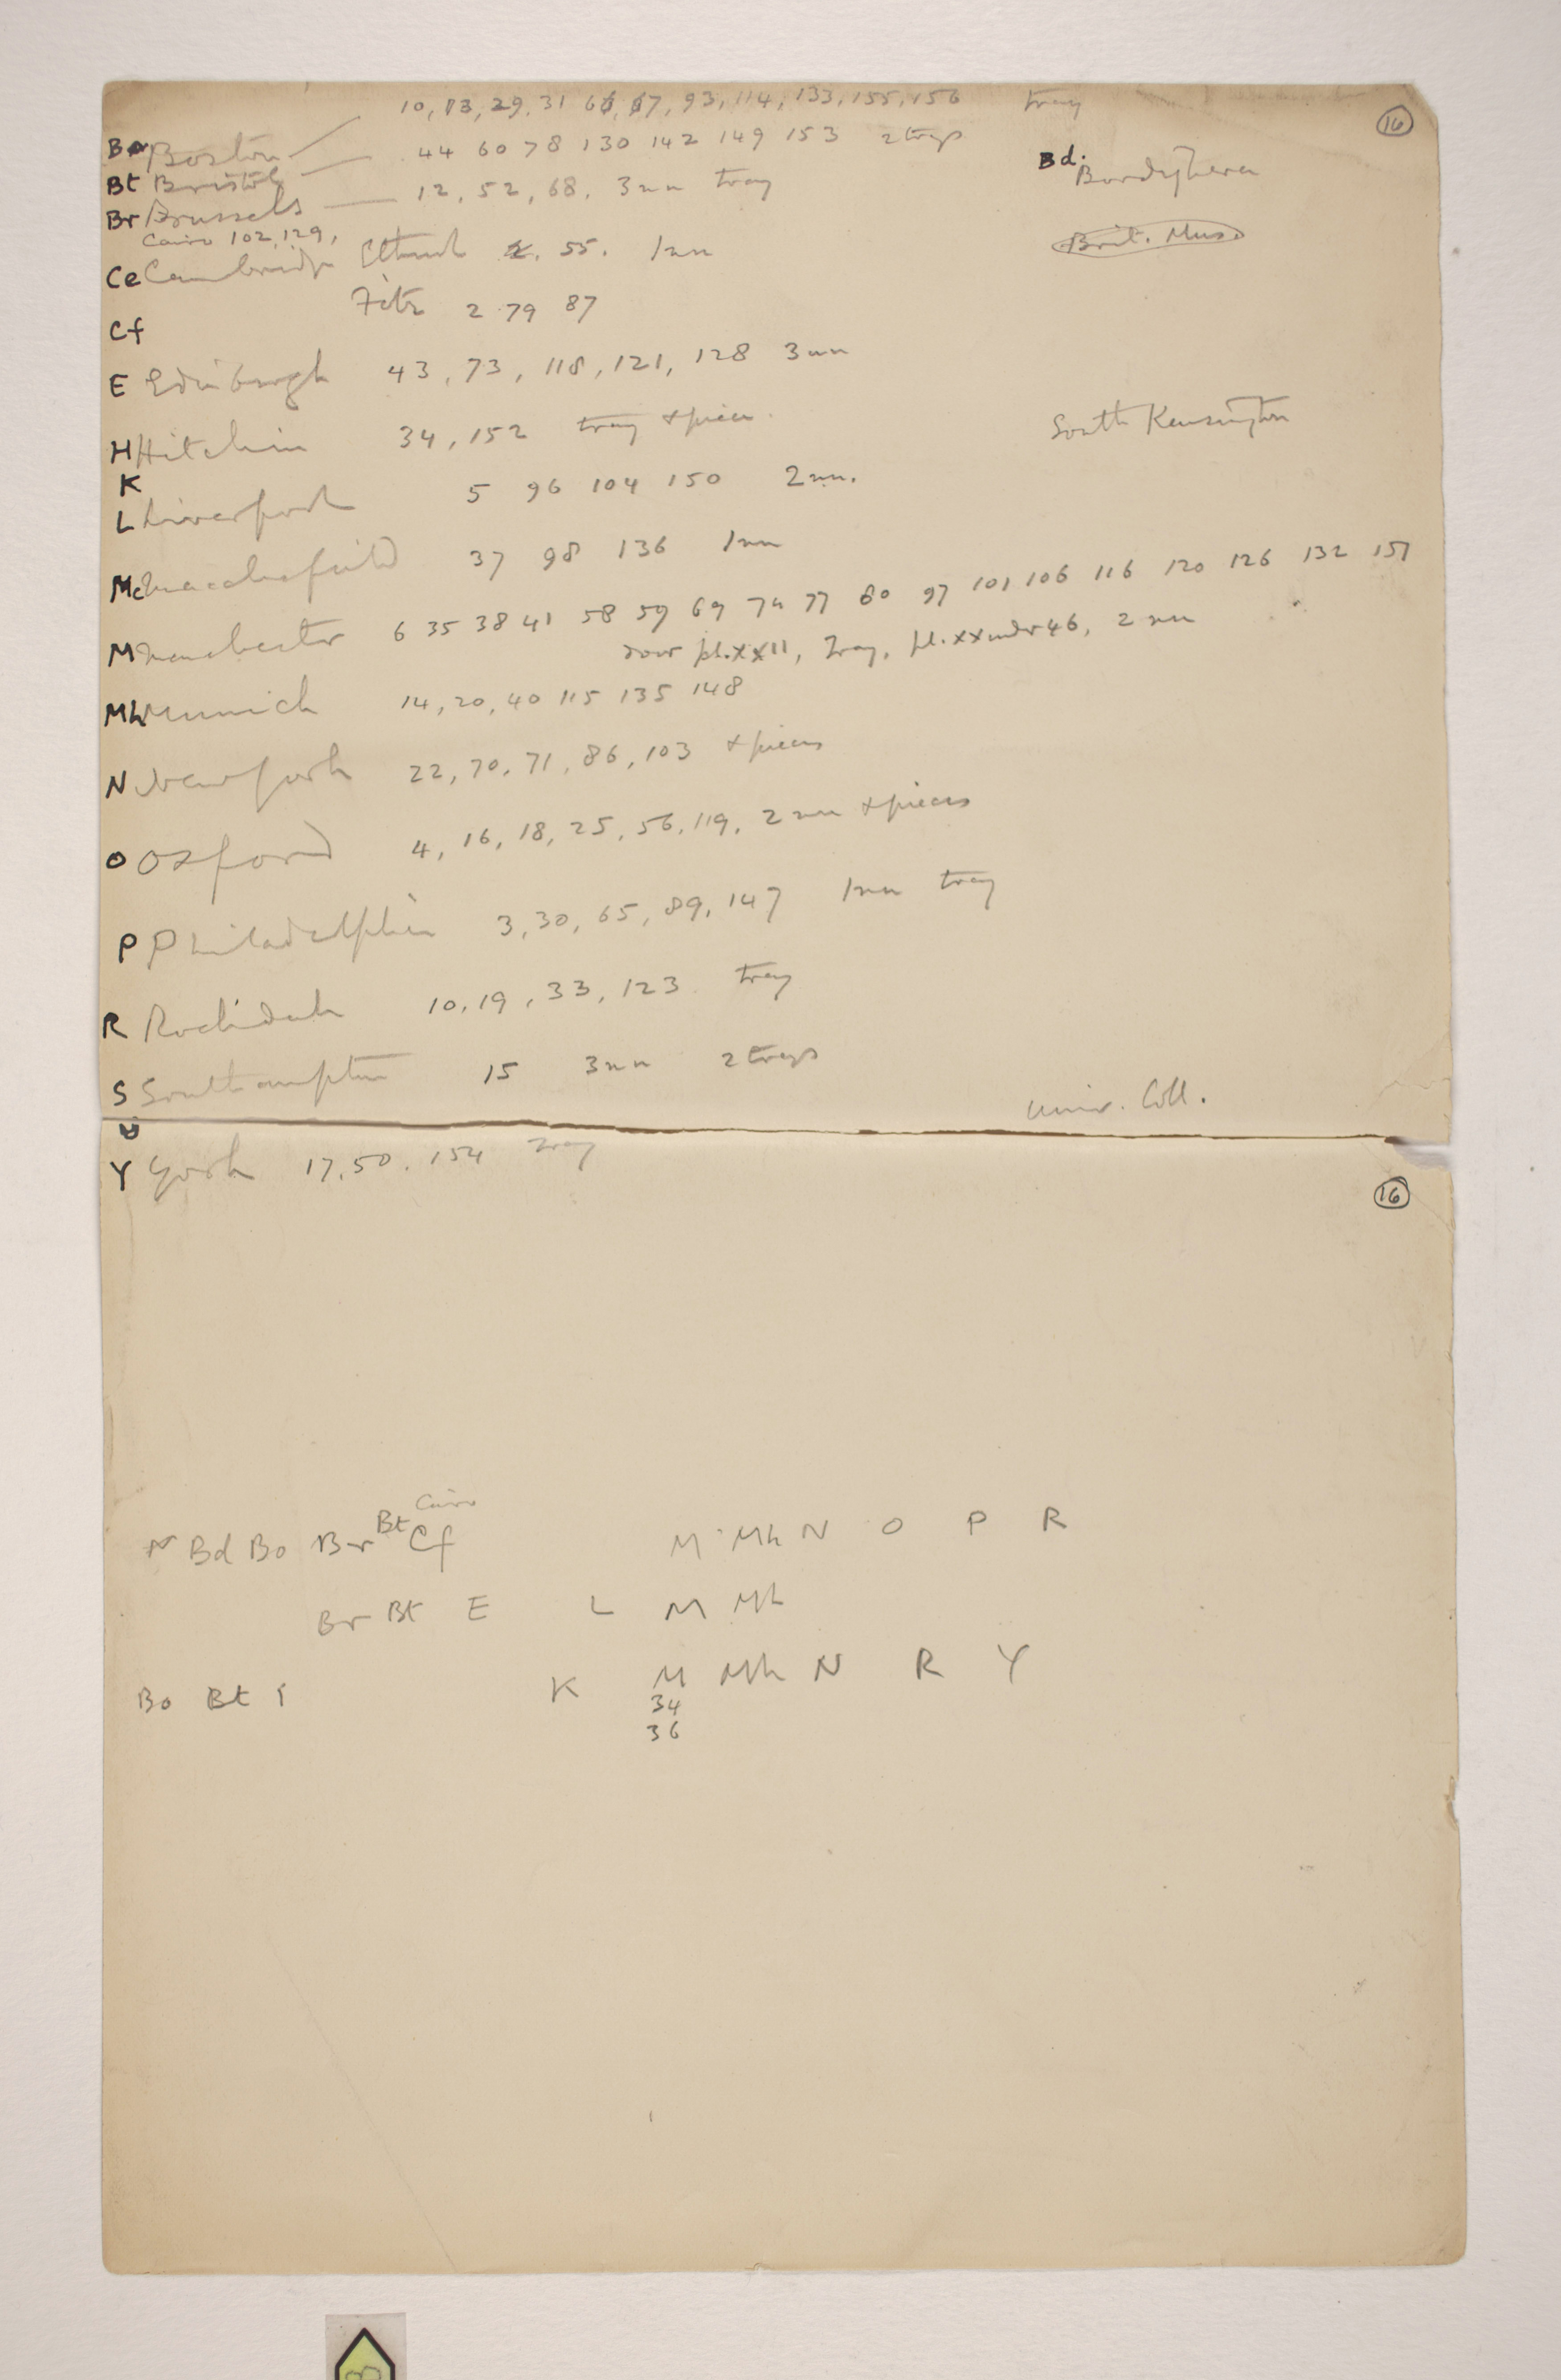 10, 13, 29, 31 66, 67, 93, 114, 133, 155, 156 tray
16
Bo Boston 44 60 78 130 142 149 153 2 trays
Bd. Bordighera
Bt Bristol 12, 52, 68, 3 un tray
Br Brussels
Cairo 102, 129,
Brit. Mus.
Ce Cambridge Ethnol 2, 55. 1 un
Cf Fitz 2 79 87
E Edinburgh 43, 73, 118, 121, 128 3 un
H Hitchin 34, 152 tray + pieces
South Kensington
K
L Liverpool 5 96 104 150 2 un.
Mc Macclesfield 37 98 136 1 un
M Manchester 6 35 38 41 58 59 69 74 77 80 97 101 106 116 120 126 132 151
pl. xxii, Tray, pl. xx under 46, 2 un
Mh Munich 14, 20, 40 115 135 148
N New York 22, 70, 71, 86, 103 + pieces
O Oxford 4, 16, 18, 25, 56, 119, 2 un + pieces
P Philadelphia 3, 30, 65, 89, 147 1 un tray
R Rochdale 10, 19, 33, 123 tray
S Southampton 15 3 un 2 trays
Univ. Coll.
U
Y York 17, 50, 154 Tray
16
Cairo
N Bd Bo Br Bt Cf M Mh N O P R
Br Bt E L M Mh
Bo Bt K M Mh N R Y
34
36